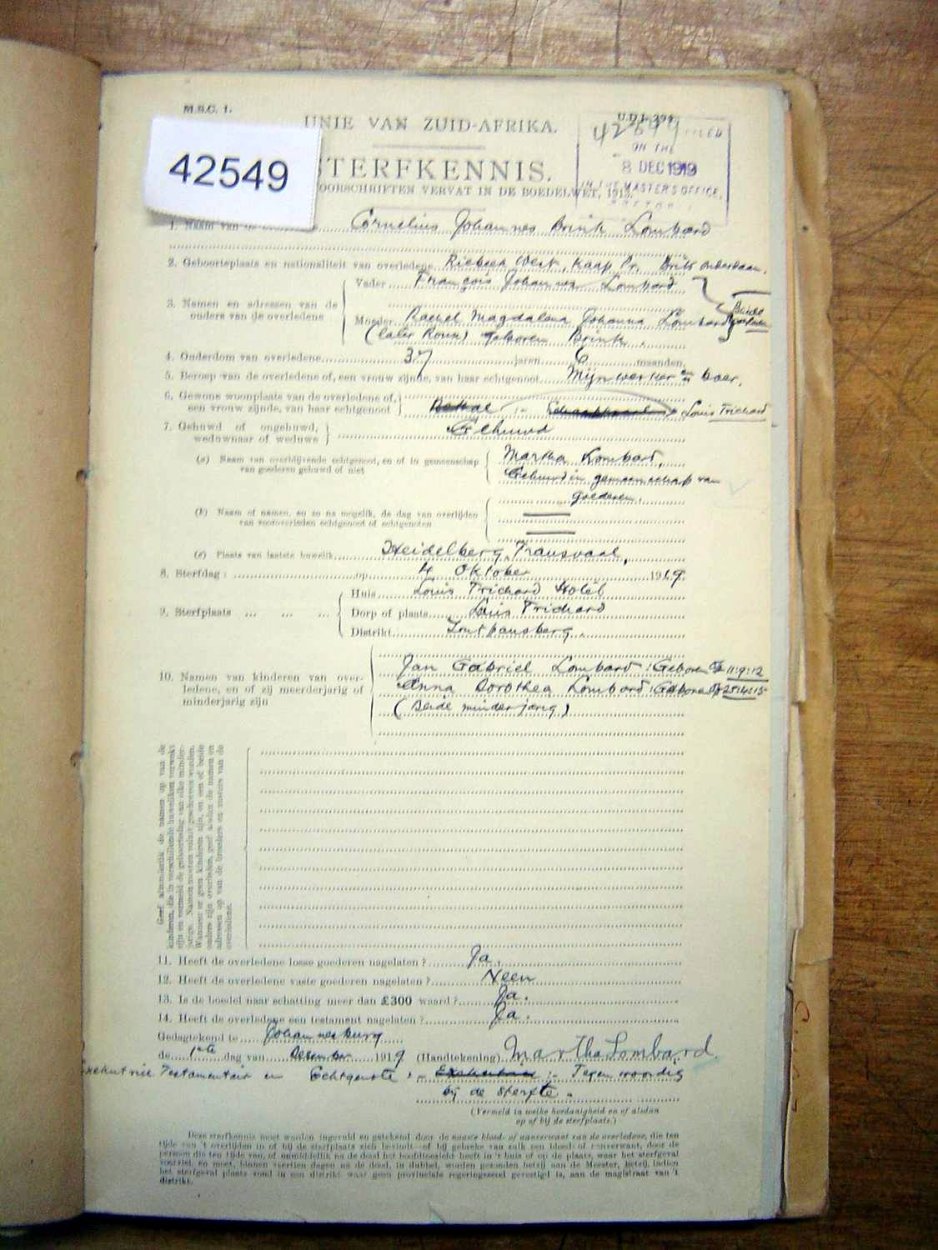 M.S.C. 1.
U.D.J. 394
UNIE VAN ZUID-AFRIKA.
42549
42549 FILED
ON THE
8 DEC 1919
IN THE MASTER'S OFFICE,
STERFKENNIS.
VOORSCHRIFTEN VERVAT IN DE BOEDELWET, 1913.
1. Naam van de Cornelius Johannes Brink Lombard
2. Geboorteplaats en nationaliteit van overledene Riebeek West, Kaap Pr. Brits onderdaan.
3. Namen en adressen van de ouders van de overledene
Vader François Johannes Lombard
Moeder Rachel Magdalena Johanna Lombard
(later Roux) geboren Brink.
Beide
4. Ouderdom van overledene 37 jaren 6 maanden
5. Beroep van de overledene of, een vrouw zijnde, van haar echtgenoot Mijnwerker en boer.
6. Gewone woonplaats van de overledene of, een vrouw zijnde, van haar echtgenoot Louis Trichard
7. Gehuwd of ongehuwd, weduwnaar of weduwe Gehuwd
(a) Naam van overblijvende echtgenoot, en of in gemeenschap van goederen gehuwd of niet
Martha Lombard,
Gehuwd in gemeenschap van
goederen.
(b) Naam of namen, en zo na mogelik, de dag van overlijden van vooroverleden echtgenoot of echtgenoten
(c) Plaats van laatste huwelik Heidelberg, Transvaal,
8. Sterfdag: op 4 Oktober 1919
9. Sterfplaats
Huis Louis Trichard Hotel
Dorp of plaats Louis Trichard
Distrikt Zoutpansberg.
10. Namen van kinderen van overledene, en of zij meerderjarig of minderjarig zijn
Jan Gabriel Lombard: Geboren 11:9:12
Anna Dorothea Lombard: Geboren 25:4:15
(Beide minderjarig)
11. Heeft de overledene losse goederen nagelaten? Ja.
12. Heeft de overledene vaste goederen nagelaten? Neen
13. Is de boedel naar schatting meer dan £300 waard? Ja.
14. Heeft de overledene een testament nagelaten? Ja.
Gedagtekend te Johannesburg
de 1ste dag van Desember 1919 (Handtekening) Martha Lombard
Exekutrice Testamentair en Echtgenote :- Tegenwoordig
bij de sterfte.
(Vermeld in welke hoedanigheid en of aldaan
op of bij de sterfplaats.)
Deze sterfkennis moet worden ingevuld en getekend door de naaste bloed- of aanverwant van de overledene, die ten